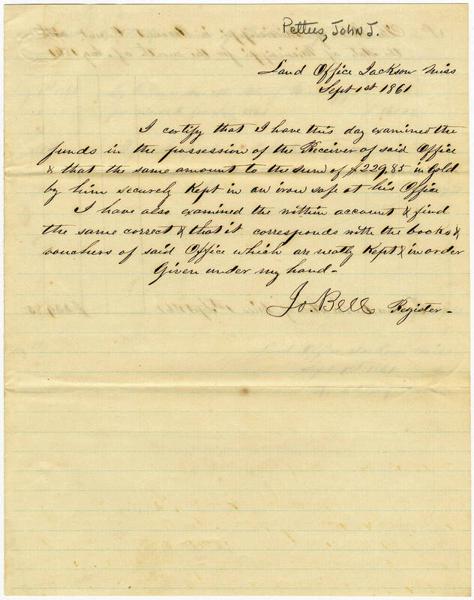 Pettus, John J.
Land Office Jackson Miss
Sept 1st 1861
I certify that I have this day examined the
funds in the possession of the Receiver of said Office
& that the same amount to the sum of $229.85 in Gold
by him securely kept in an iron safe at his Office
I have also examined the within account & find
the same correct & that it corresponds with the books &
vouchers of said Office which are neatly kept & in order
Given under my hand -
Jo. Bell Register -